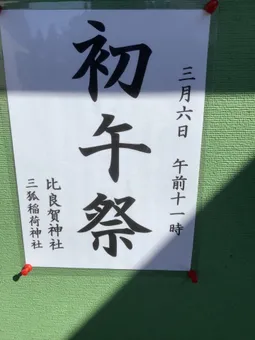 三月六日 午前十一時
初午祭
比良賀神社
三狐稲荷神社